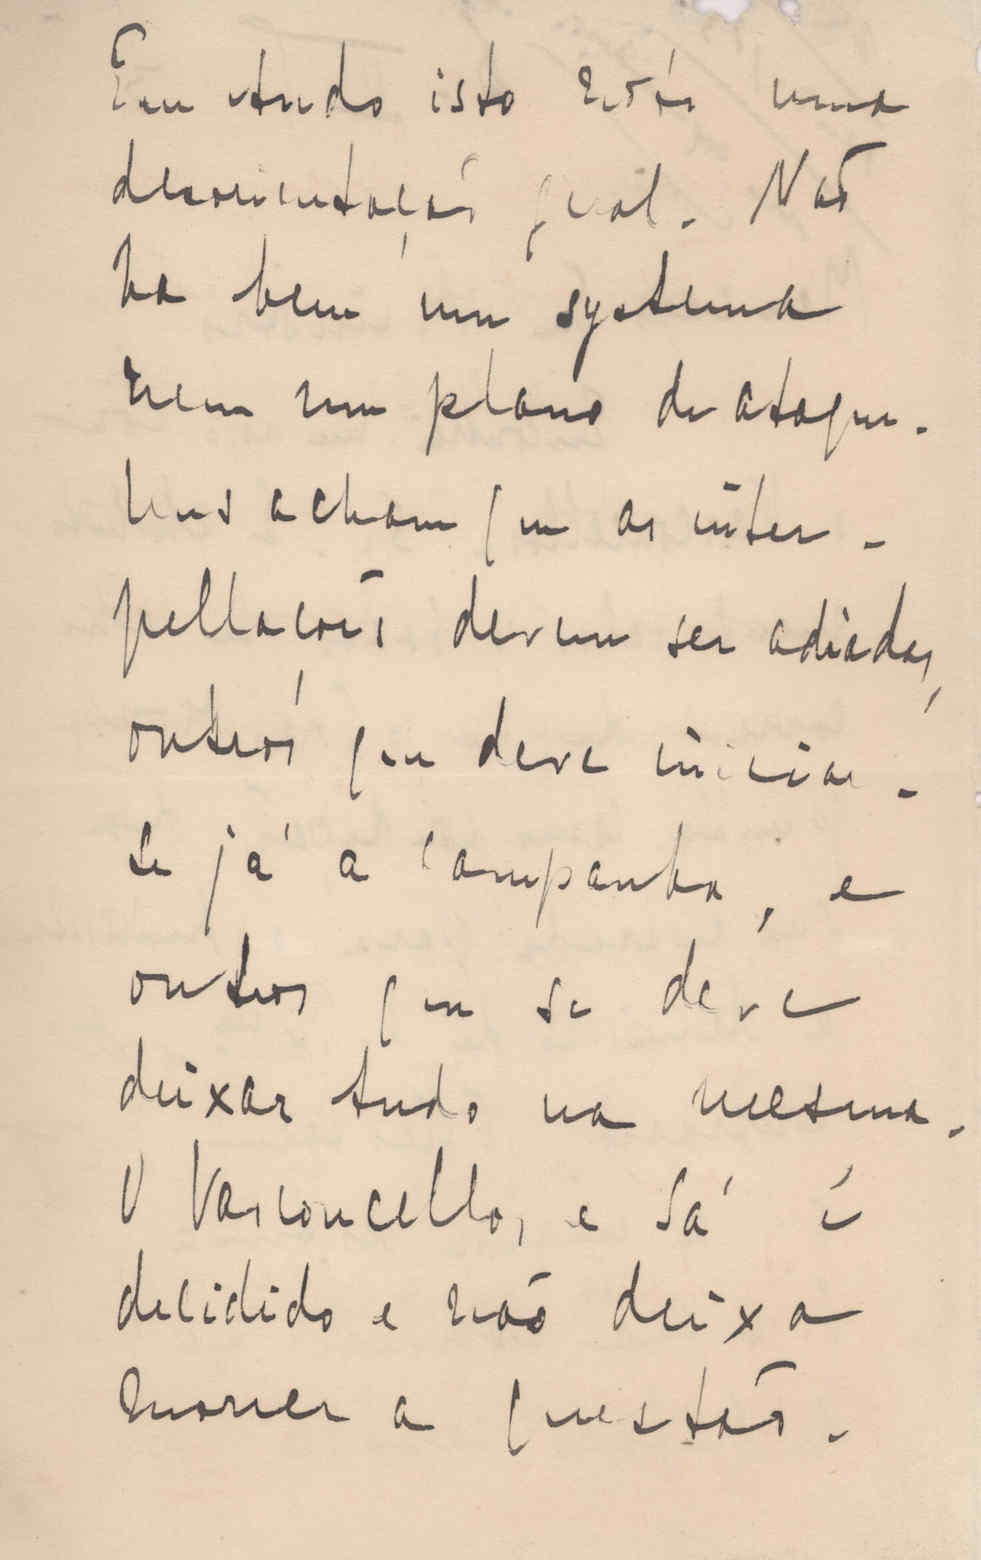 Em tudo isto ha uma
desorientação geral. Não
ha bem um systema
nem um plano de ataque.
Uns acham que as inter-
pellações devem ser adiadas,
outros que deve iniciar-
se já a campanha, e
outros que se deve
deixar tudo na mesma.
O Vasconcellos e Sá é
decidido e não deixa
morrer a questão.